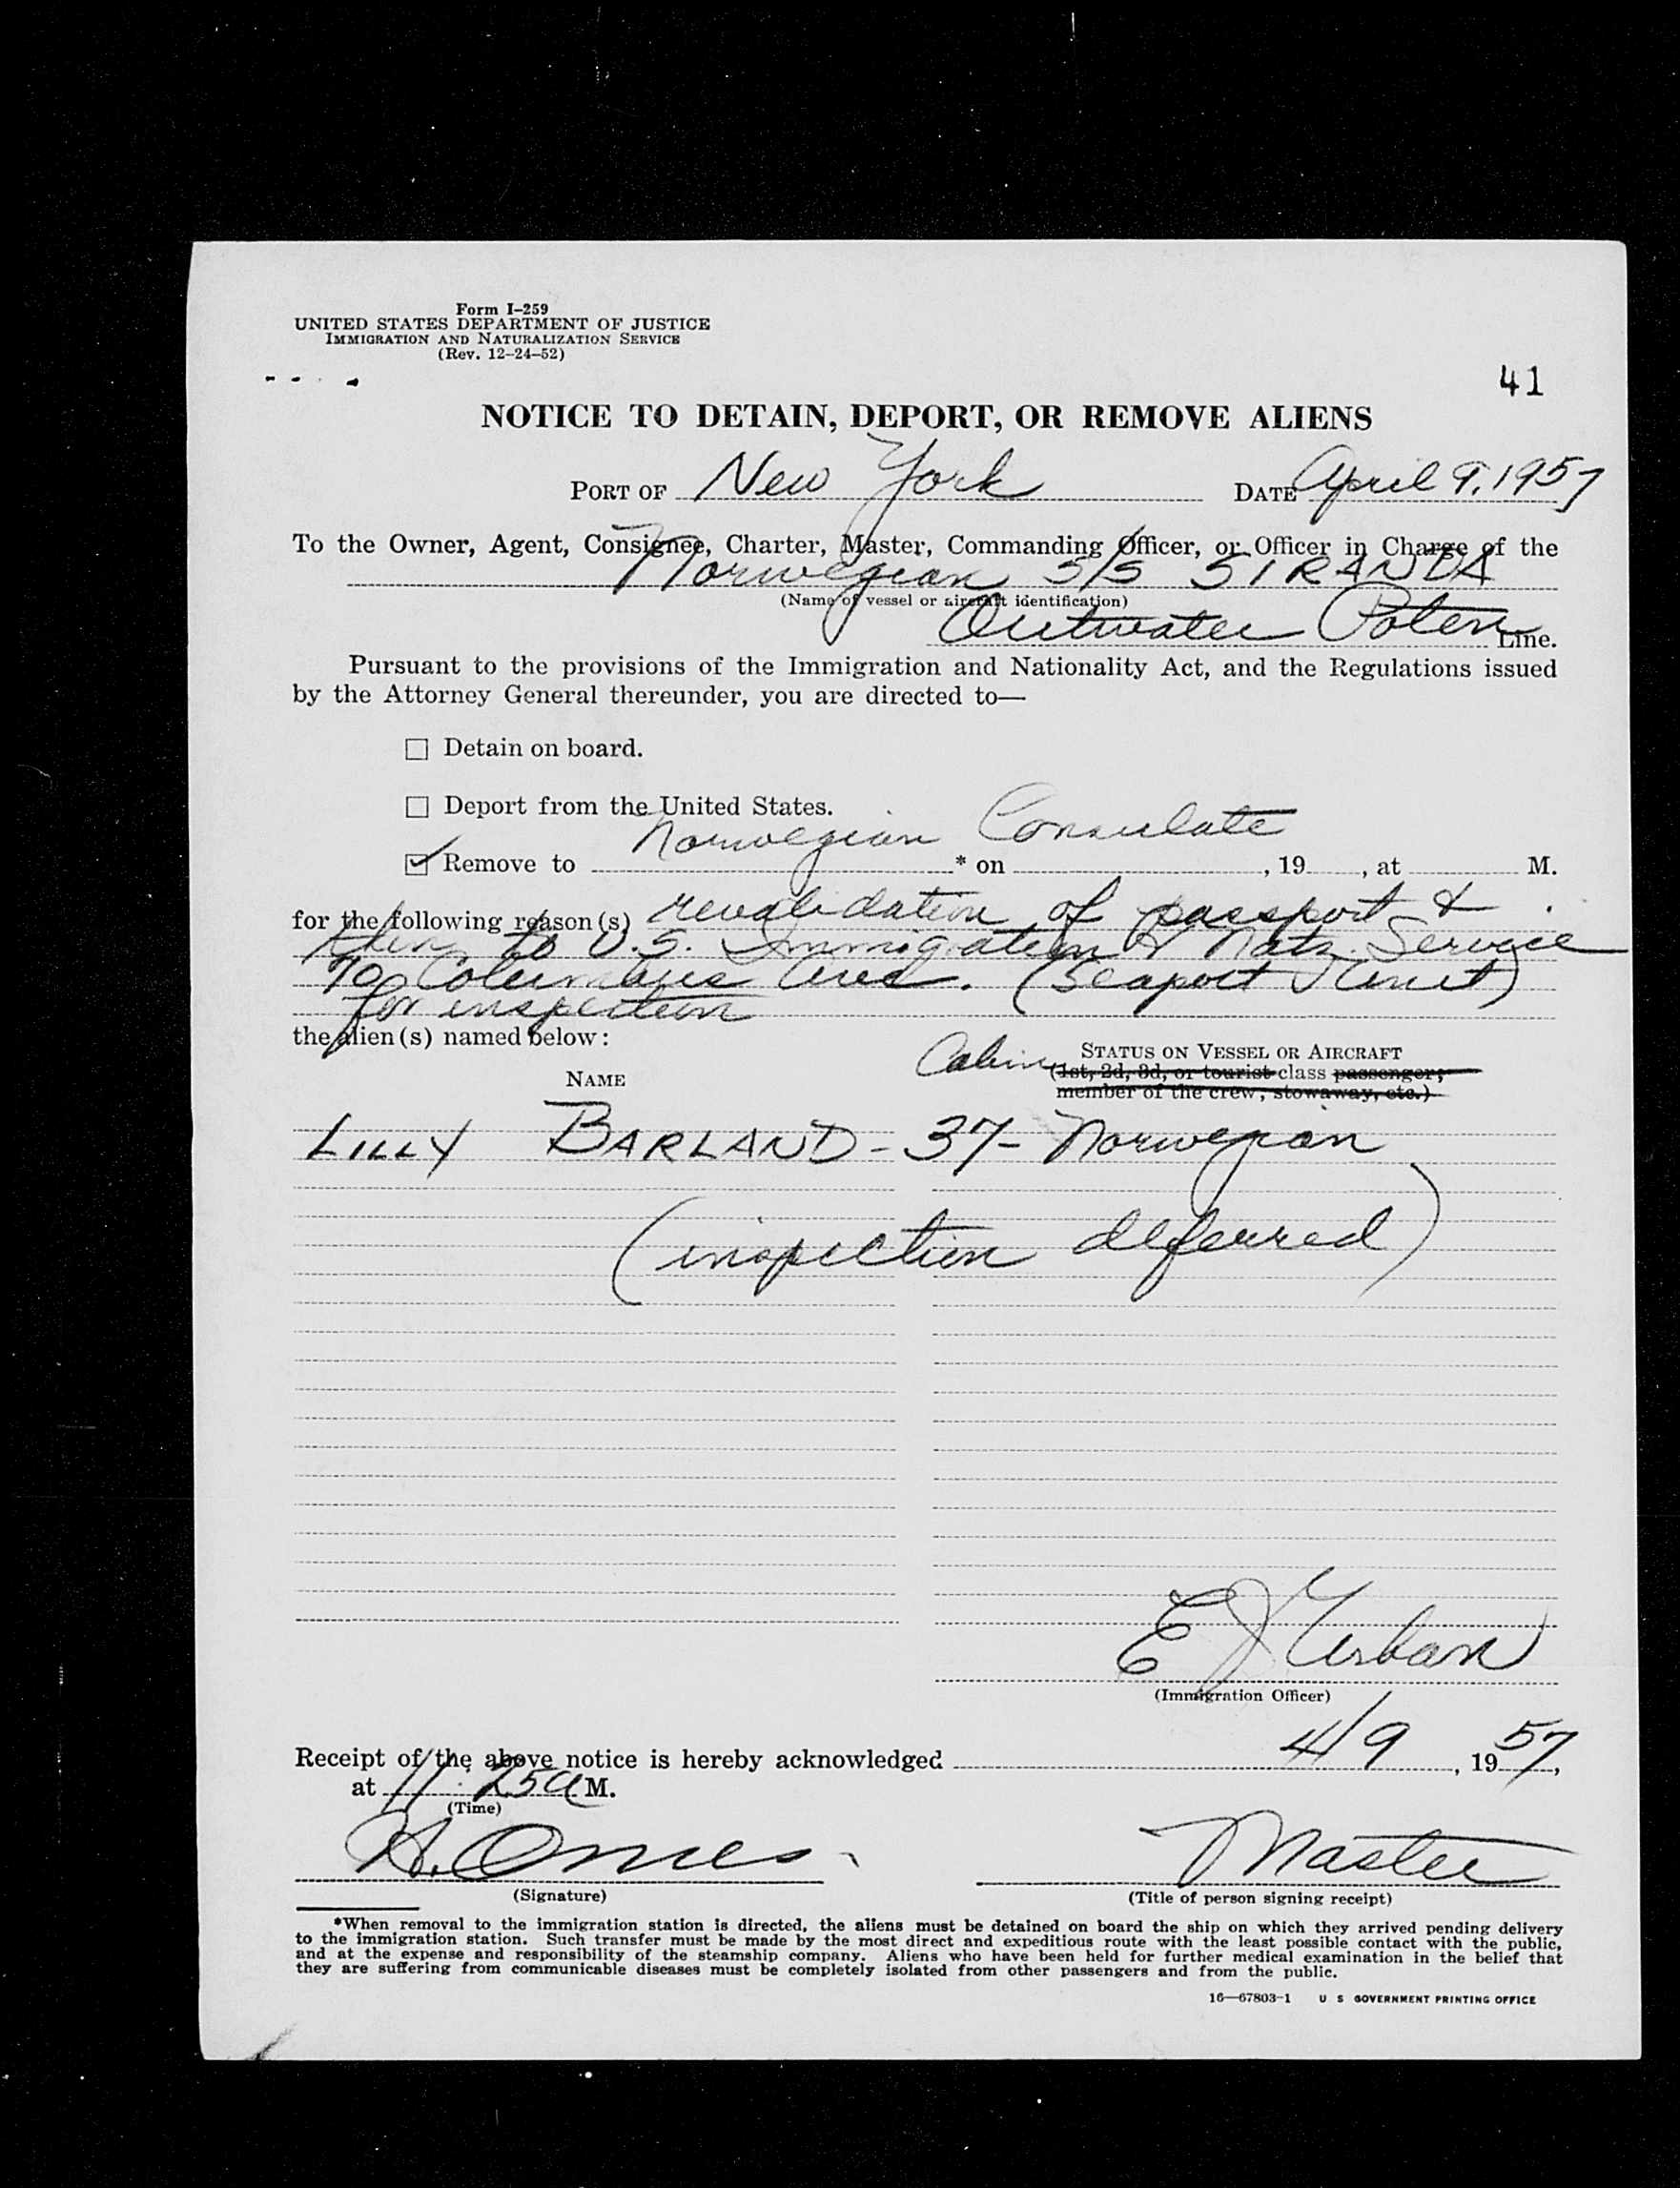 Form I-259
UNITED STATES DEPARTMENT OF JUSTICE
IMMIGRATION AND NATURALIZATION SERVICE
(Rev. 12-24-52)
41
NOTICE TO DETAIN, DEPORT, OR REMOVE ALIENS
PORT OF New York DATE April 9, 1957
To the Owner, Agent, Consignee, Charter, Master, Commanding Officer, or Officer in Charge of the
Norwegian S/S SIRANDA
(Name of vessel or aircraft identification)
Outwater Poten Line.
Pursuant to the provisions of the Immigration and Nationality Act, and the Regulations issued
by the Attorney General thereunder, you are directed to—
☐ Detain on board.
☐ Deport from the United States.
Norwegian Consulate
☑ Remove to * on , 19 , at M.
for the following reason(s) revalidation of passport &
then to U.S. Immigration & Natz. Service
70 Columbus Ave. (Seaport Unit)
for inspection
the alien(s) named below:
NAME
Cabin STATUS ON VESSEL OR AIRCRAFT
(1st, 2d, 3d, or tourist class passenger;
member of the crew, stowaway, etc.)
LILLY BARLAND - 37 - Norwegian
(inspection deferred)
E J Urban
(Immigration Officer)
Receipt of the above notice is hereby acknowledged 4/9, 1957,
at 11:25 A M.
(Time)
Master
(Signature)
(Title of person signing receipt)
*When removal to the immigration station is directed, the aliens must be detained on board the ship on which they arrived pending delivery
to the immigration station. Such transfer must be made by the most direct and expeditious route with the least possible contact with the public,
and at the expense and responsibility of the steamship company. Aliens who have been held for further medical examination in the belief that
they are suffering from communicable diseases must be completely isolated from other passengers and from the public.
16—67803-1 U S GOVERNMENT PRINTING OFFICE